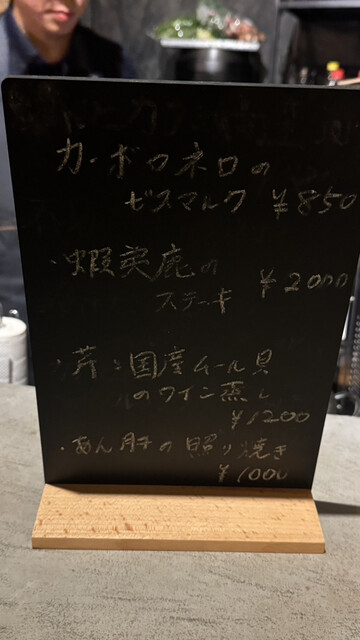 カーボロネロの
ビスマルク ¥850
・蝦夷鹿の ¥2000
ステーキ
・芹と国産ムール貝
のワイン蒸し
¥1200
・あん肝の照り焼き
¥1000